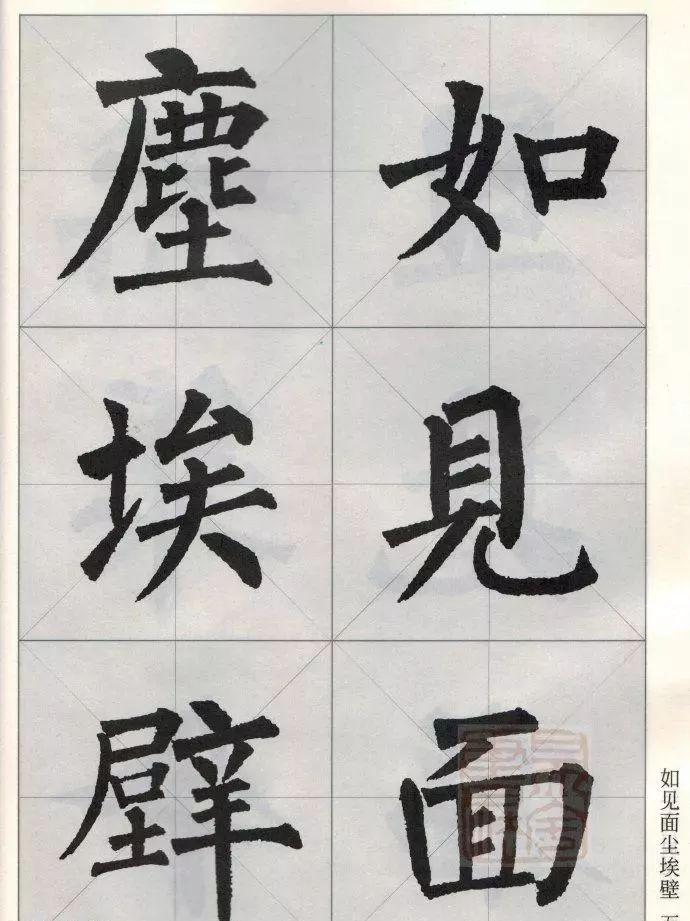 如見面
塵埃壁
如见面尘埃壁